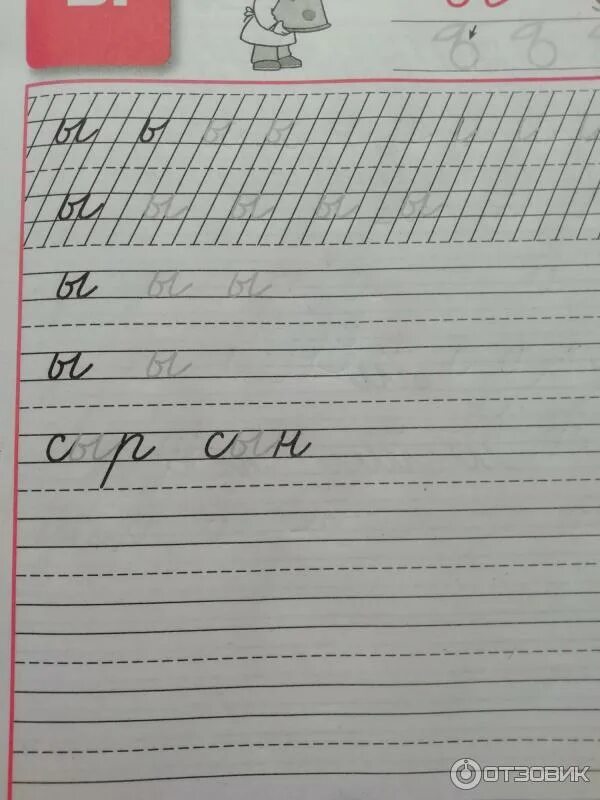 Ы
ы ь ы ы
ы ы ы ы ы
ы ы ы
ы ы
сыр сын
ОТЗОВИК